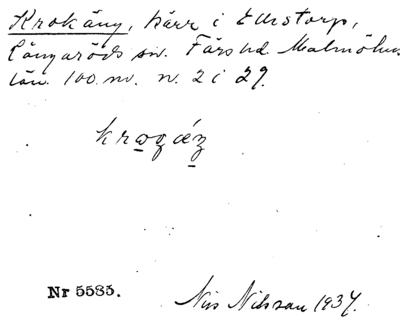 Krokäng, kärr i Ellestorp,
Långaröds sn. Färs hd. Malmöhus
län. 100 m. n. 2 i 29.
krogǽŋ
Nr 5585.
Nils Nilsson 1937.